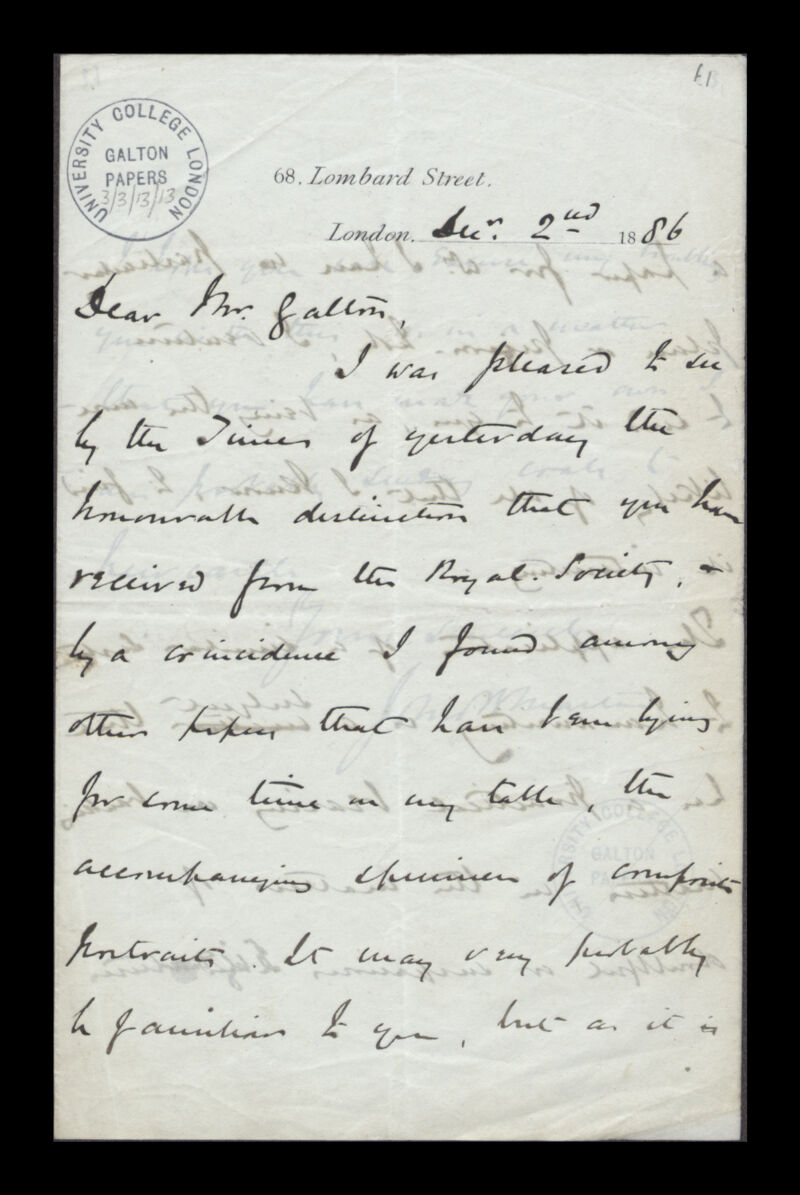 EB
UNIVERSITY COLLEGE LONDON
GALTON
PAPERS
3/3/13/13
68. Lombard Street.
London. Decr. 2nd 1886
Dear Mr. Galton,
I was pleased to see
by the Times of yesterday the
honourable distinction that you have
received from the Royal Society, &
by a coincidence I found among
other papers that have been lying
for some time on my table, the
accompanying specimen of composite
portraits. It may very probably
be familiar to you, but as it is